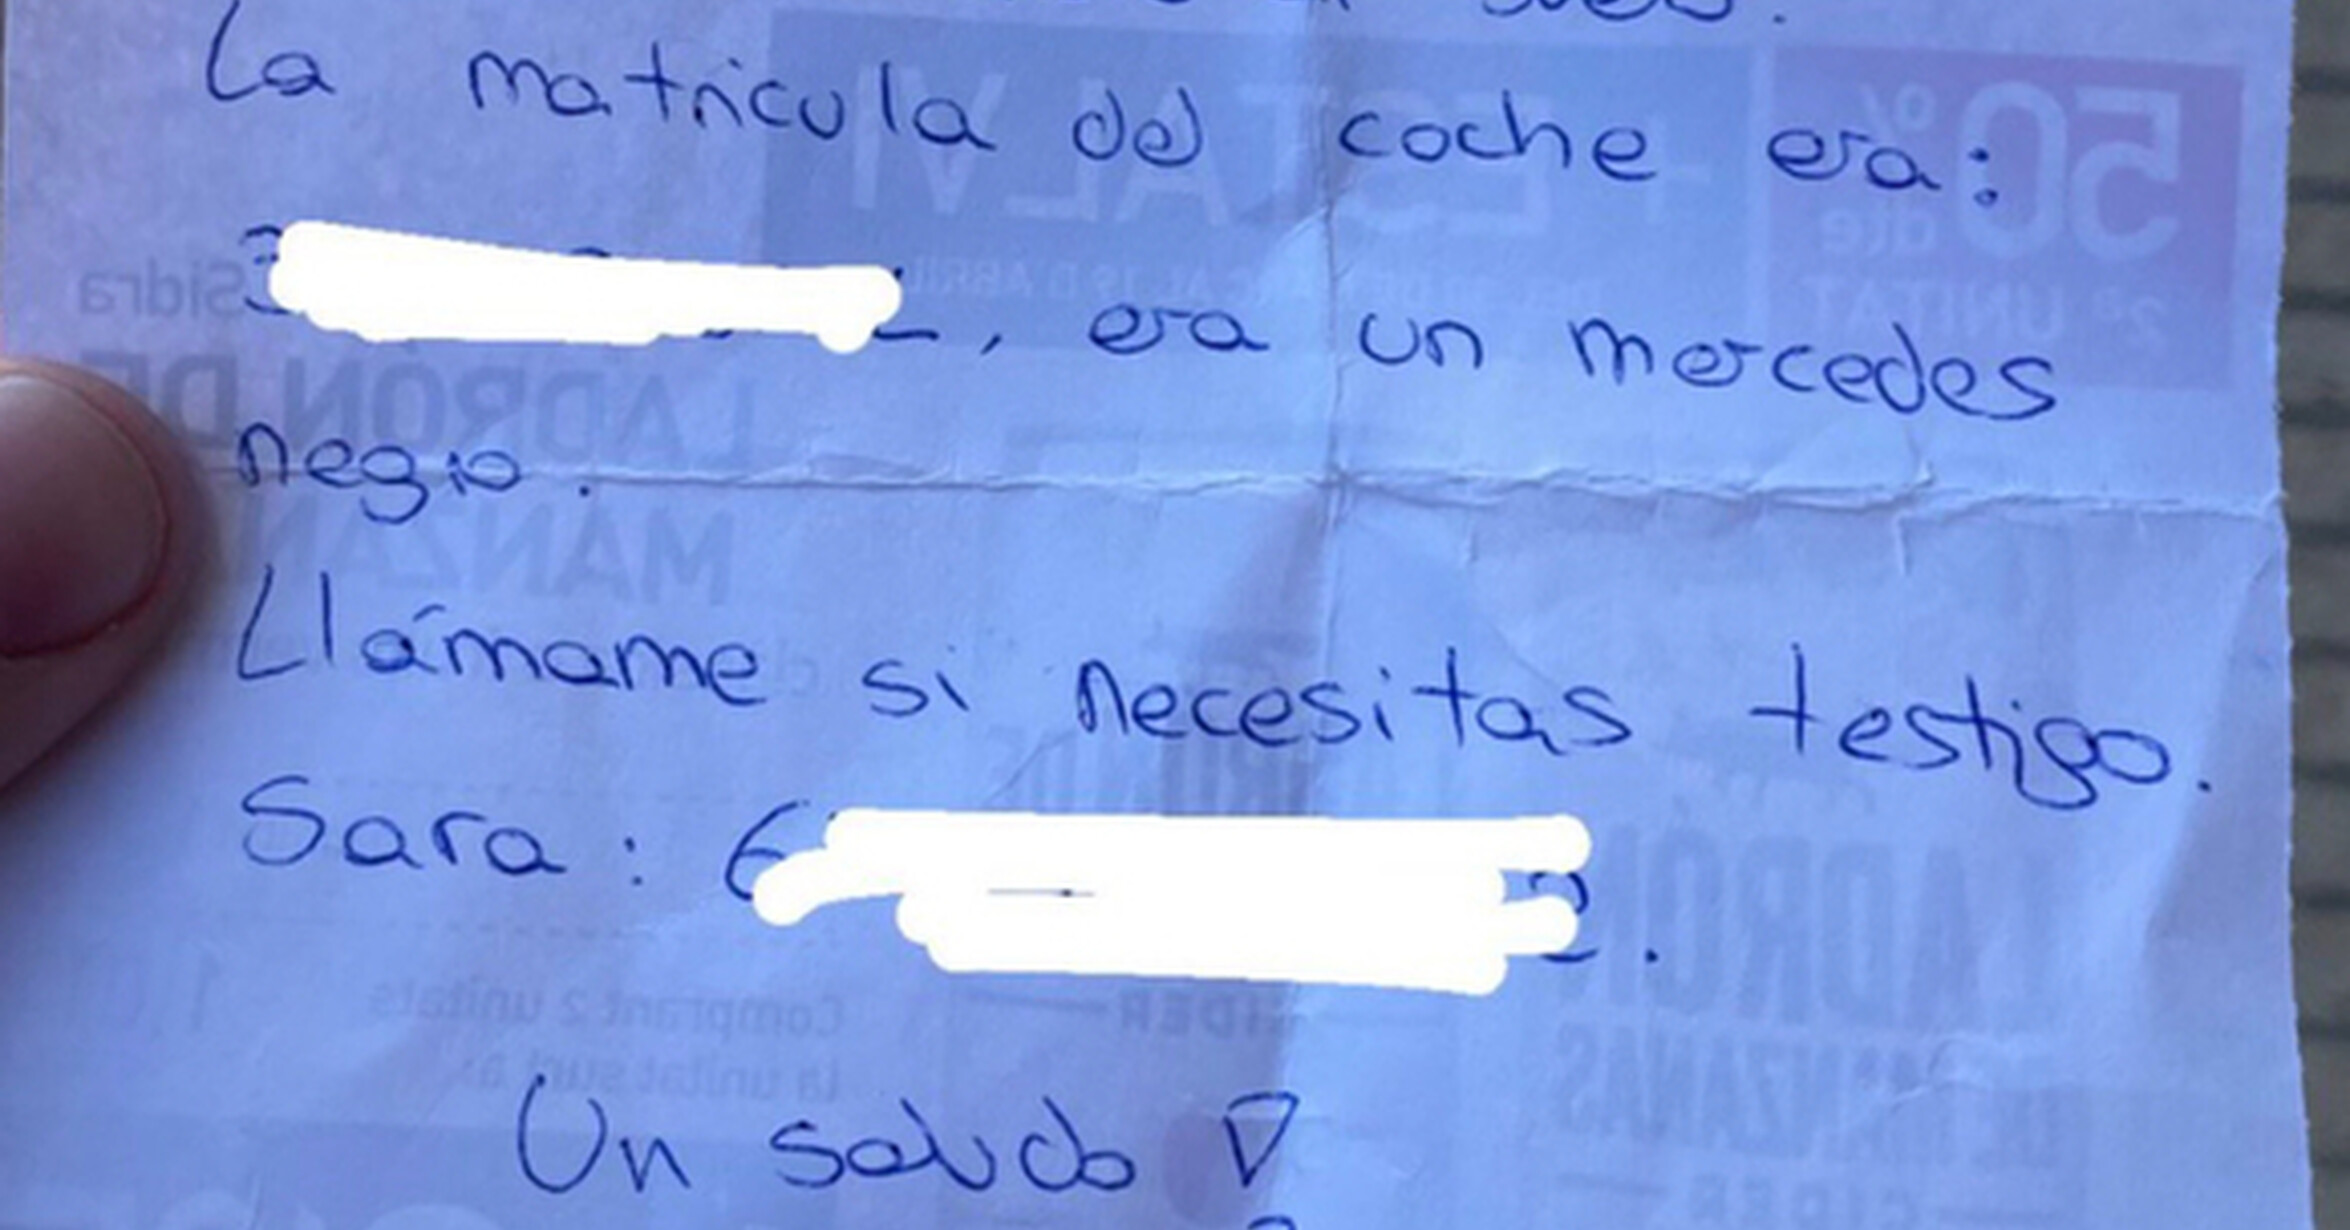 La matricula del coche era:
, era un mercedes
negro.
Llámame si necesitas testigo.
Sara: 6
Un saludo
50% dte
2ª UNITAT
ESTALVI
Sidra
LADRÓN DE
MANZAN
Comprant 2 unitats
la unitat surt a:
LADRÓN
DE MANZANAS
CIDER